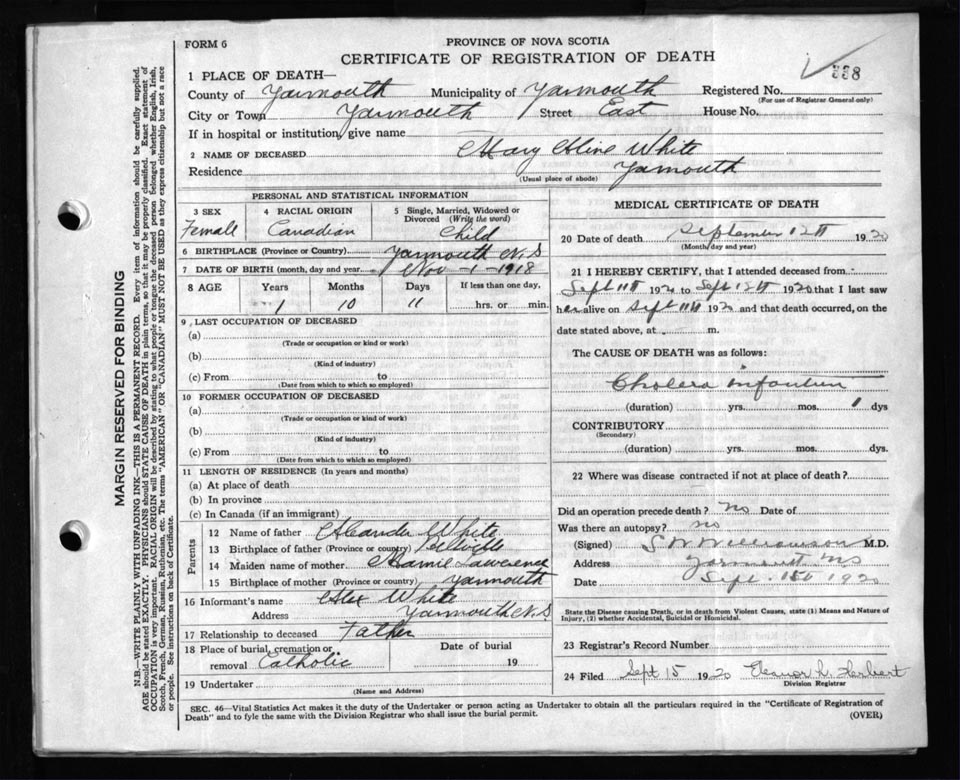 FORM 6
PROVINCE OF NOVA SCOTIA
CERTIFICATE OF REGISTRATION OF DEATH
338
1 PLACE OF DEATH—
County of Yarmouth Municipality of Yarmouth Registered No.
(For use of Registrar General only)
City or Town Yarmouth Street East House No.
If in hospital or institution, give name
2 NAME OF DECEASED Mary Aline White
Residence Yarmouth
(Usual place of abode)
PERSONAL AND STATISTICAL INFORMATION
3 SEX 4 RACIAL ORIGIN 5 Single, Married, Widowed or Divorced (Write the word)
Female Canadian Child
6 BIRTHPLACE (Province or Country) Yarmouth N.S
7 DATE OF BIRTH (month, day and year) Nov -1-1918
8 AGE Years Months Days If less than one day,
1 10 11 hrs. or min.
9 LAST OCCUPATION OF DECEASED
(a)
(Trade or occupation or kind or work)
(b)
(Kind of industry)
(c) From to
(Date from which to which so employed)
10 FORMER OCCUPATION OF DECEASED
(a)
(Trade or occupation or kind of work)
(b)
(Kind of industry)
(c) From to
(Date from which to which so employed)
11 LENGTH OF RESIDENCE (In years and months)
(a) At place of death
(b) In province
(c) In Canada (if an immigrant)
Parents
12 Name of father White
13 Birthplace of father (Province or country)
14 Maiden name of mother Mamie Lawrence
15 Birthplace of mother (Province or country) Yarmouth
16 Informant's name Alex White
Address Yarmouth N.S
17 Relationship to deceased Father
18 Place of burial, cremation or removal Catholic
Date of burial 19
19 Undertaker
(Name and Address)
MEDICAL CERTIFICATE OF DEATH
20 Date of death September 12th 1920
(Month, day and year)
21 I HEREBY CERTIFY, that I attended deceased from
Sept 11th 1920 to Sept 12th 1920 that I last saw
her alive on Sept 11th 1920 and that death occurred, on the
date stated above, at m.
The CAUSE OF DEATH was as follows:
Cholera infantum
(duration) yrs. mos. 1 dys
CONTRIBUTORY
(Secondary)
(duration) yrs. mos. dys
22 Where was disease contracted if not at place of death?
Did an operation precede death? no Date of
Was there an autopsy? no
(Signed) Williamson M.D.
Address Yarmouth NS
Date Sept. 1920
State the Disease causing Death, or in death from Violent Causes, state (1) Means and Nature of
Injury, (2) whether Accidental, Suicidal or Homicidal.
23 Registrar's Record Number
24 Filed Sept 15 1920 Herbert
Division Registrar
SEC. 46—Vital Statistics Act makes it the duty of the Undertaker or person acting as Undertaker to obtain all the particulars required in the "Certificate of Registration of
Death" and to fyle the same with the Division Registrar who shall issue the burial permit.
(OVER)
MARGIN RESERVED FOR BINDING
N.B.—WRITE PLAINLY WITH UNFADING INK—THIS IS A PERMANENT RECORD. Every item of information should be carefully supplied.
AGE should be stated EXACTLY. PHYSICIANS should STATE CAUSE OF DEATH in plain terms, so that it may be properly classified. Exact statement of
OCCUPATION is very important. RACIAL ORIGIN will be described by stating to what people or tongue the deceased person belonged whether English, Irish,
Scotch, French, German, Russian, Ruthenian, etc. The terms "AMERICAN" OR "CANADIAN" MUST NOT BE USED as they express citizenship but not a race
or people. See instructions on back of Certificate.